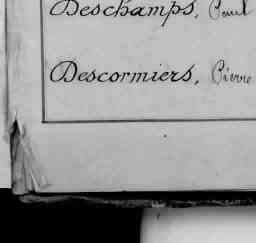 Deschamps, Paul
Descormiers, Pierre